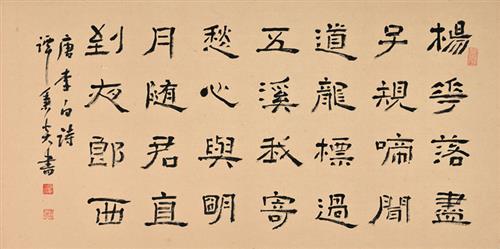 楊華落盡
子規啼聞
道龍標過
五溪我寄
愁心與明
月随君直
到夜郎西
唐李白詩
譚秉炎書